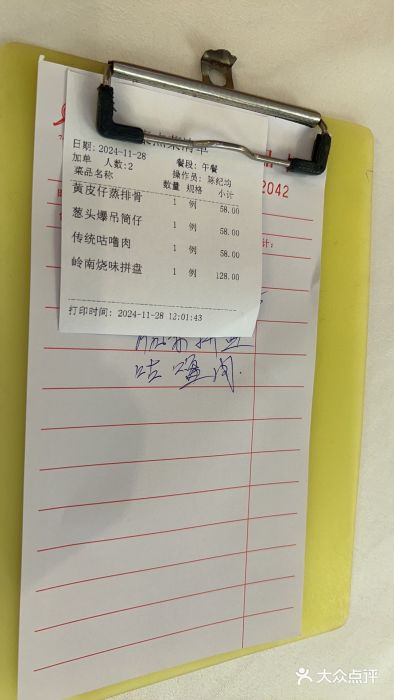 点菜清单
日期: 2024-11-28 餐段: 午餐
加单 人数:2 操作员: 陈纪均
菜品名称 数量 规格 小计
黄皮仔蒸排骨 1 例 58.00
葱头爆吊筒仔 1 例 58.00
传统咕噜肉 1 例 58.00
岭南烧味拼盘 1 例 128.00
打印时间: 2024-11-28 12:01:43
2042
计:
咕噜肉.
大众点评